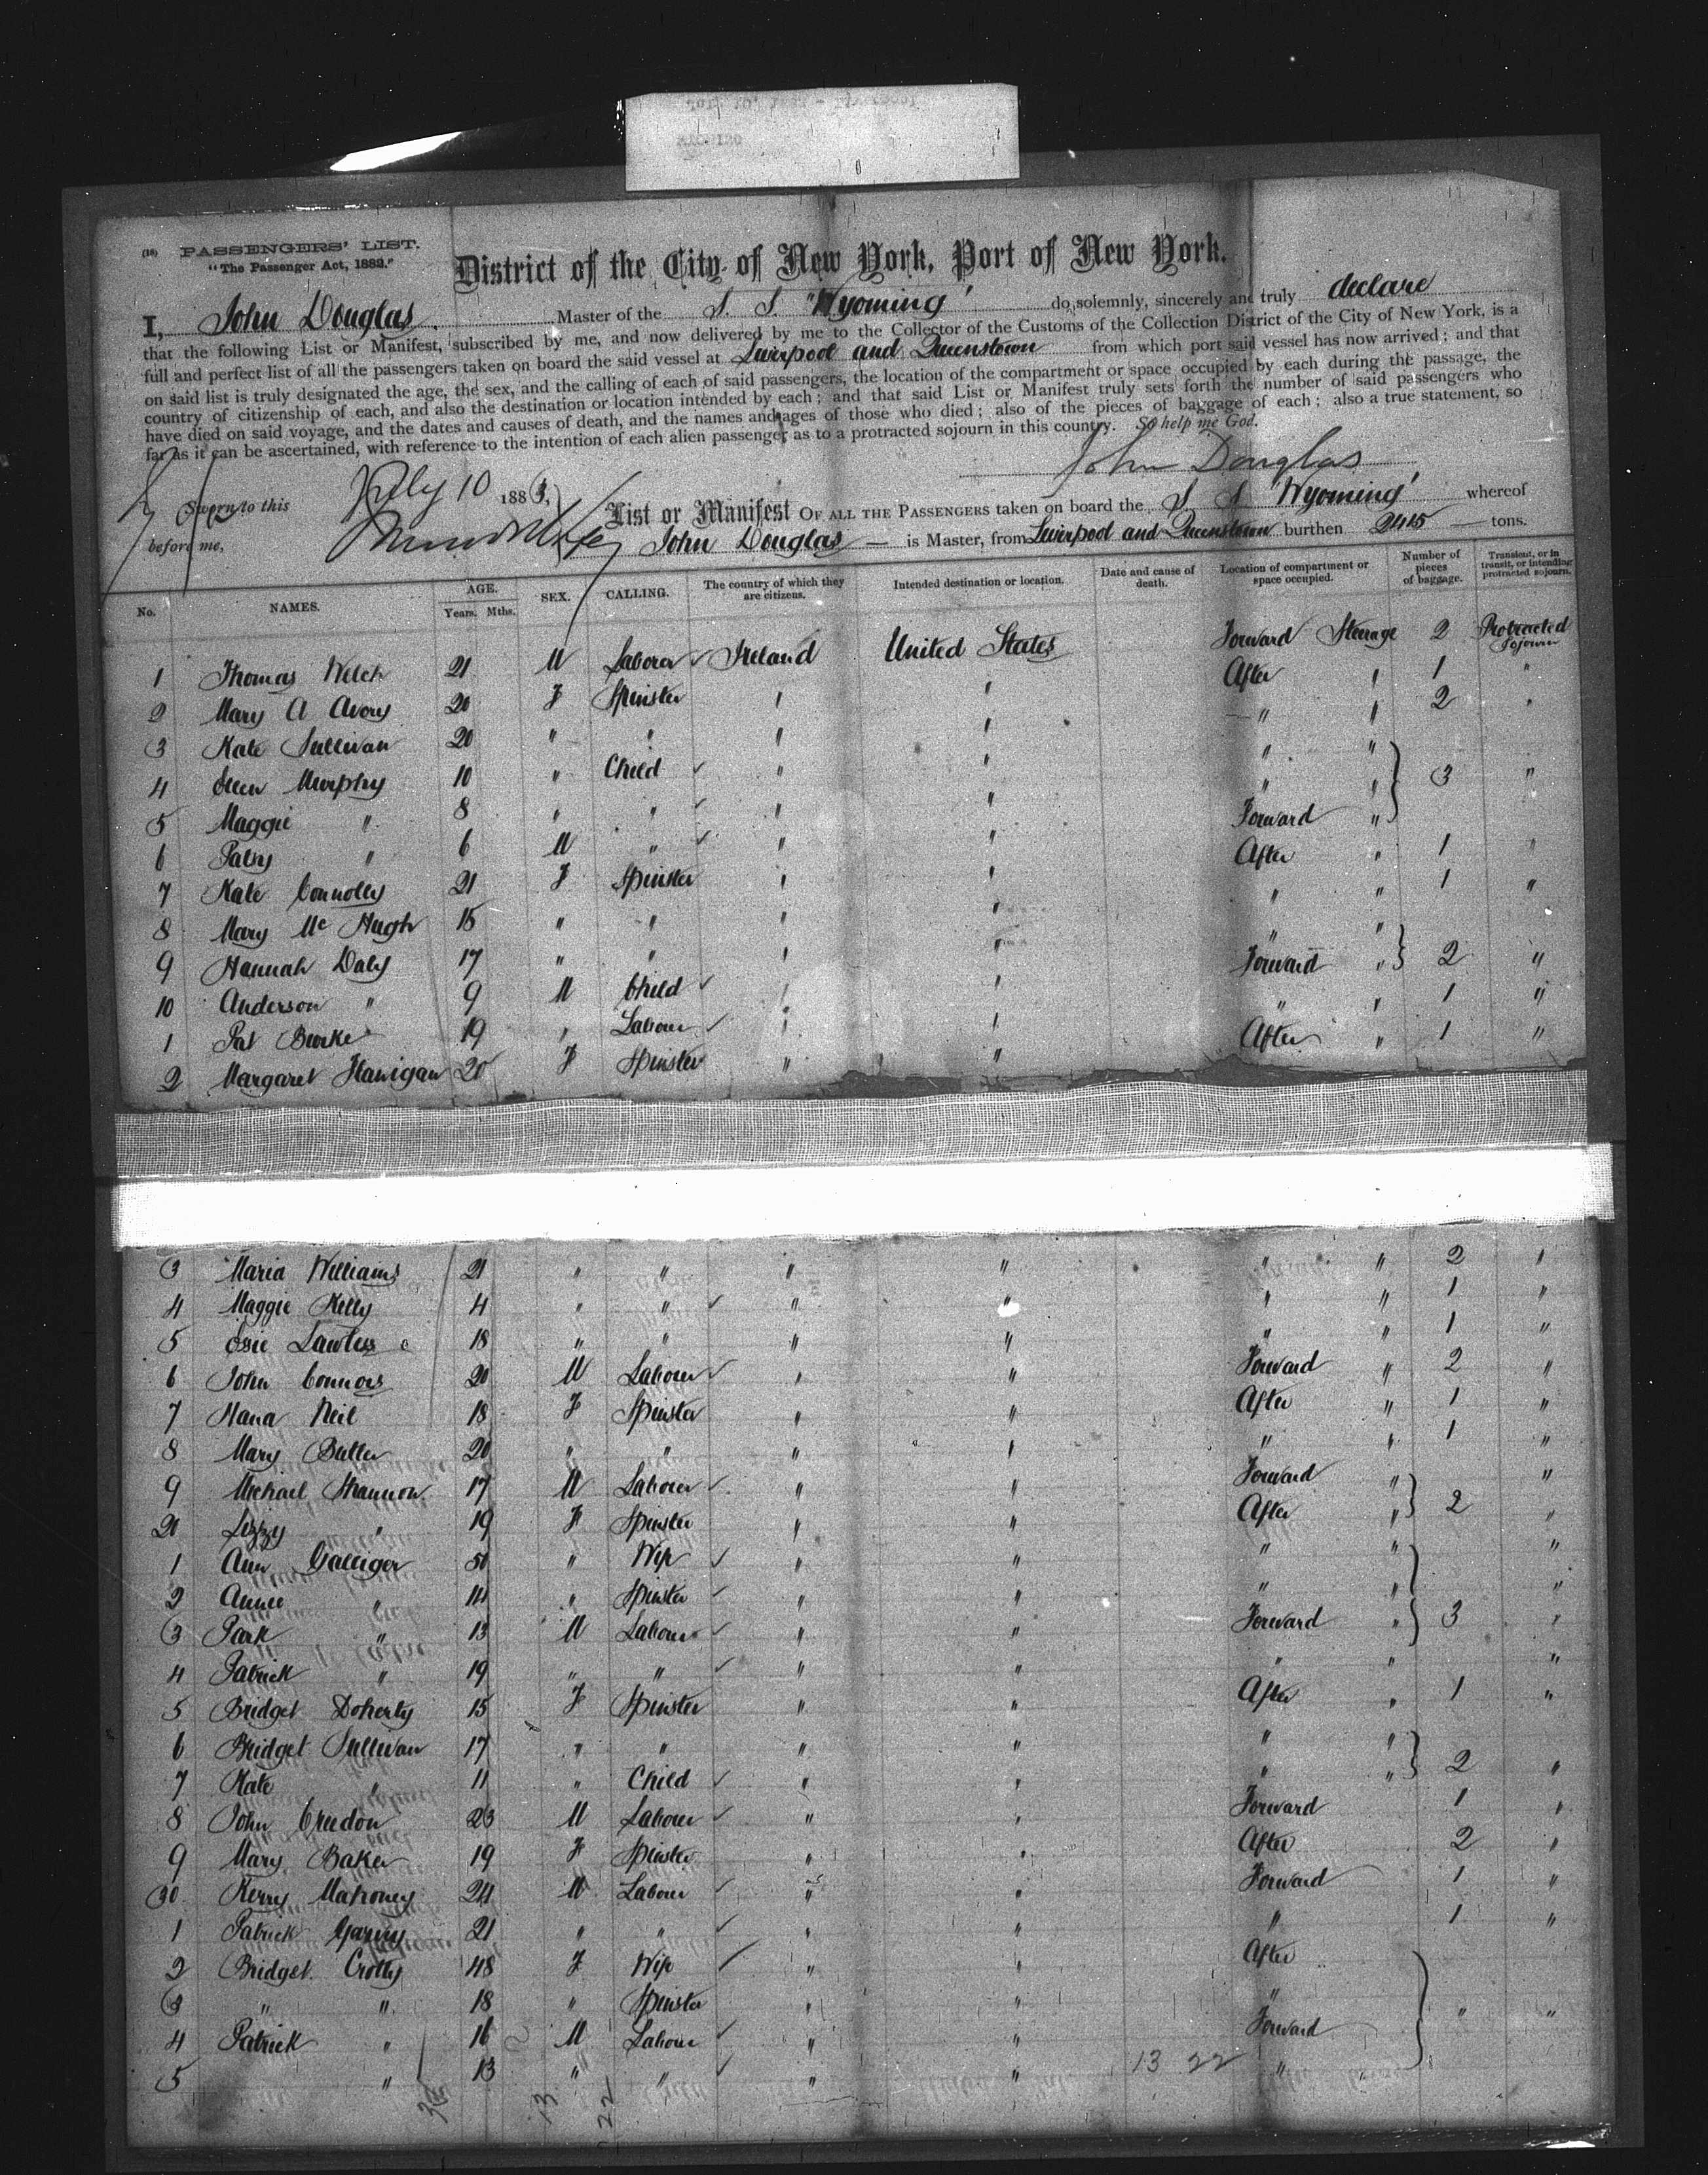 (18) PASSENGERS' LIST.
"The Passenger Act, 1882."
District of the City of New York, Port of New York.
I, John Douglas Master of the S. S. "Wyoming" do, solemnly, sincerely and truly declare
that the following List or Manifest, subscribed by me, and now delivered by me to the Collector of the Customs of the Collection District of the City of New York, is a
full and perfect list of all the passengers taken on board the said vessel at Liverpool and Queenstown from which port said vessel has now arrived; and that
on said list is truly designated the age, the sex, and the calling of each of said passengers, the location of the compartment or space occupied by each during the passage, the
country of citizenship of each, and also the destination or location intended by each; and that said List or Manifest truly sets forth the number of said passengers who
have died on said voyage, and the dates and causes of death, and the names and ages of those who died; also of the pieces of baggage of each; also a true statement, so
far as it can be ascertained, with reference to the intention of each alien passenger as to a protracted sojourn in this country. So help me God.
John Douglas
Sworn to this July 10 1883,
before me,
List or Manifest OF ALL THE PASSENGERS taken on board the S S "Wyoming" whereof
John Douglas — is Master, from Liverpool and Queenstown burthen 2415 — tons.
No. NAMES. AGE. Years. Mths. SEX. CALLING. The country of which they are citizens. Intended destination or location. Date and cause of death. Location of compartment or space occupied. Number of pieces of baggage. Transient, or in transit, or intending protracted sojourn.
1 Thomas Welch 21 M Laborer Ireland United States Forward Steerage 2 Protracted Sojourn
2 Mary A Avory 20 F Spinster " " After " 1 "
3 Kate Sullivan 20 " " " " " " 2 "
4 Ellen Murphy 10 " Child " " " "
5 Maggie " 8 " " " " " " 3 "
6 Patsy " 6 M " " " Forward "
7 Kate Connolly 21 F Spinster " " After " 1 "
8 Mary Mc Hugh 15 " " " " " " 1 "
9 Hannah Daly 17 " " " " " "
10 Anderson " 9 M Child " " Forward " 2 "
1 Pat Burke 19 " Laborer " " " " 1 "
2 Margaret Flanigan 20 F Spinster " " After " 1 "
3 Maria Williams 21 " " " " " " 2 "
4 Maggie Kelly 4 " " " " " " 1 "
5 Lawless 18 " " " " " " 1 "
6 John Connors 20 M Laborer " " Forward " 2 "
7 Hana Neil 18 F Spinster " " After " 1 "
8 Mary Butler 20 " " " " " " 1 "
9 Michael Shannon 17 M Laborer " " Forward " "
20 Lizzy " 19 F Spinster " " After " 2 "
1 Ann Galliger 50 " Wife " " " " "
2 Annie " 14 " Spinster " " " " "
3 Park " 13 M Laborer " " Forward " 3 "
4 Patrick " 19 " " " " " " "
5 Bridget Doherty 15 F Spinster " " After " 1 "
6 Bridget Sullivan 17 " " " " " "
7 Kate " 11 " Child " " " " 2 "
8 John Creedon 23 M Laborer " " Forward 1 "
9 Mary Baker 19 F Spinster " " After 2 "
30 Kerry Mahoney 24 M Laborer " " Forward 1 "
1 Patrick Garvey 21 " " " " " 1 "
2 Bridget Crotty 48 F Wife " " After
3 " " 18 " Spinster " " "
4 Patrick " 16 M Laborer " " Forward " "
5 " 13 " " " " 13 22 "
13 22